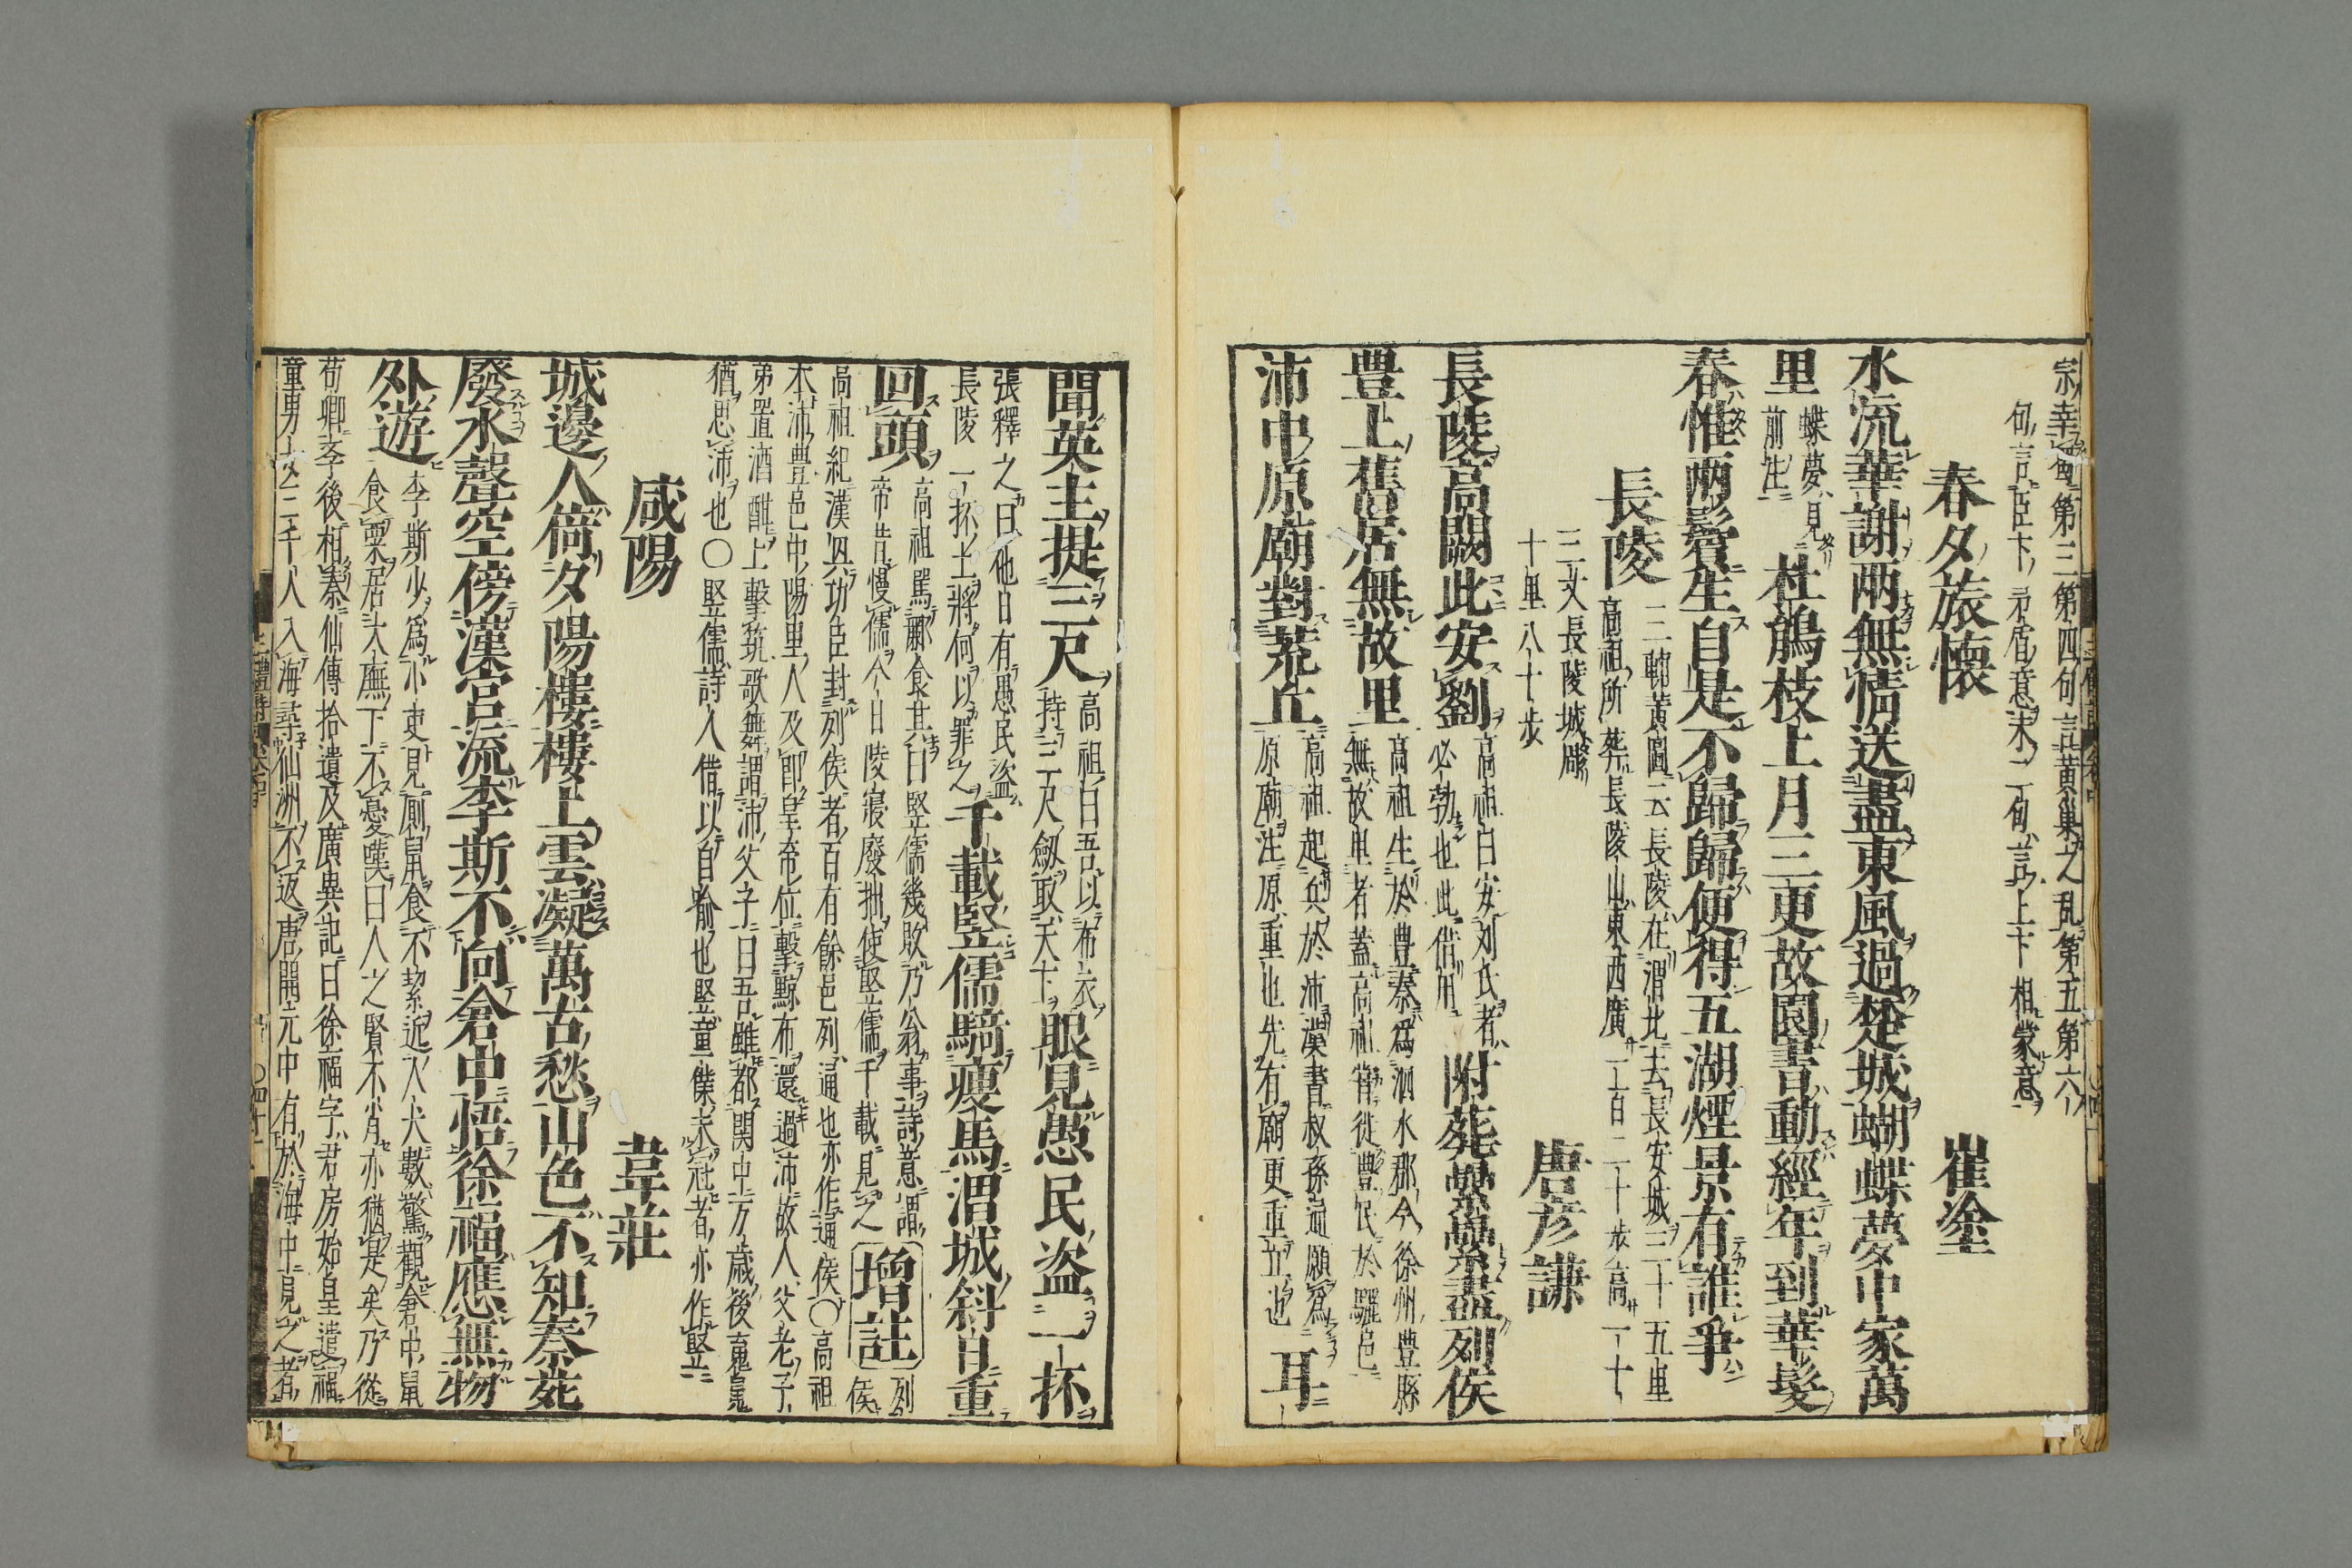 宗幸蜀第三第四句言黄巢之乱第五第六
句言臣下矛盾意末二句言上下相蒙意
春夕旅懷
崔塗
水流華謝兩無情送盡東風過楚城蝴蝶夢中家萬
里
蝶夢見
前注
杜鵑枝上月三更故園書動經年到華髮
春惟兩鬢生自是不歸歸便得五湖煙景有誰爭
長陵
三輔黄圖云長陵在渭北去長安城三十五里
高祖所葬長陵山東西廣一百二十步高一十
三丈長陵城
十里八十步
唐彦謙
長陵高闕此安劉
高祖曰安刘氏者
必勃也此借用
附葬纍纍盡列侯
豊上舊居無故里
高祖生於豊秦爲泗水郡今徐州豊縣
無故里者蓋高祖甞徙豊民於驪邑
沛中原廟對荒丘
高祖起兵於沛漢書叔孫通願爲
原廟注原重也先有廟更重立也
耳
聞英主提三尺
高祖曰吾以布衣
持三尺劔取天下
眼見愚民盗一抔
張釋之曰他日有愚民盗
長陵一抔土將何以罪之
千載竪儒騎瘦馬渭城斜日重
回頭
高祖罵酈食其曰竪儒幾敗乃翁事詩意謂
帝昔慢儒今日陵寝廢拙使竪儒千載見之
增註
列
侯
高祖紀漢興功臣封列侯者百有餘邑列通也亦作通侯〇高祖
本沛豊邑中陽里人及即皇帝位擊黥布還過沛故人父老子
弟置酒酣上擊筑歌舞謂沛父子曰吾雖都関中万歳後䰟魄
猶思沛也〇竪儒詩人借以自喻也竪童僕未冠者亦作竪
咸陽
韋莊
城邊人倚夕陽樓樓上雲凝萬古愁山色不知秦苑
廢水聲空傍漢宫流李斯不向倉中悟徐福應無物
外遊
李斯少爲小吏見厠鼠食不絜近人犬數驚觀倉中鼠
食粟居大廡下不憂嘆曰人之賢不肖亦猶是矣乃從
荀卿斈後相秦仙傳拾遺及廣異記曰徐福字君房始皇遣福
童男女三千人入海尋仙洲不返唐開元中有於海中見之者